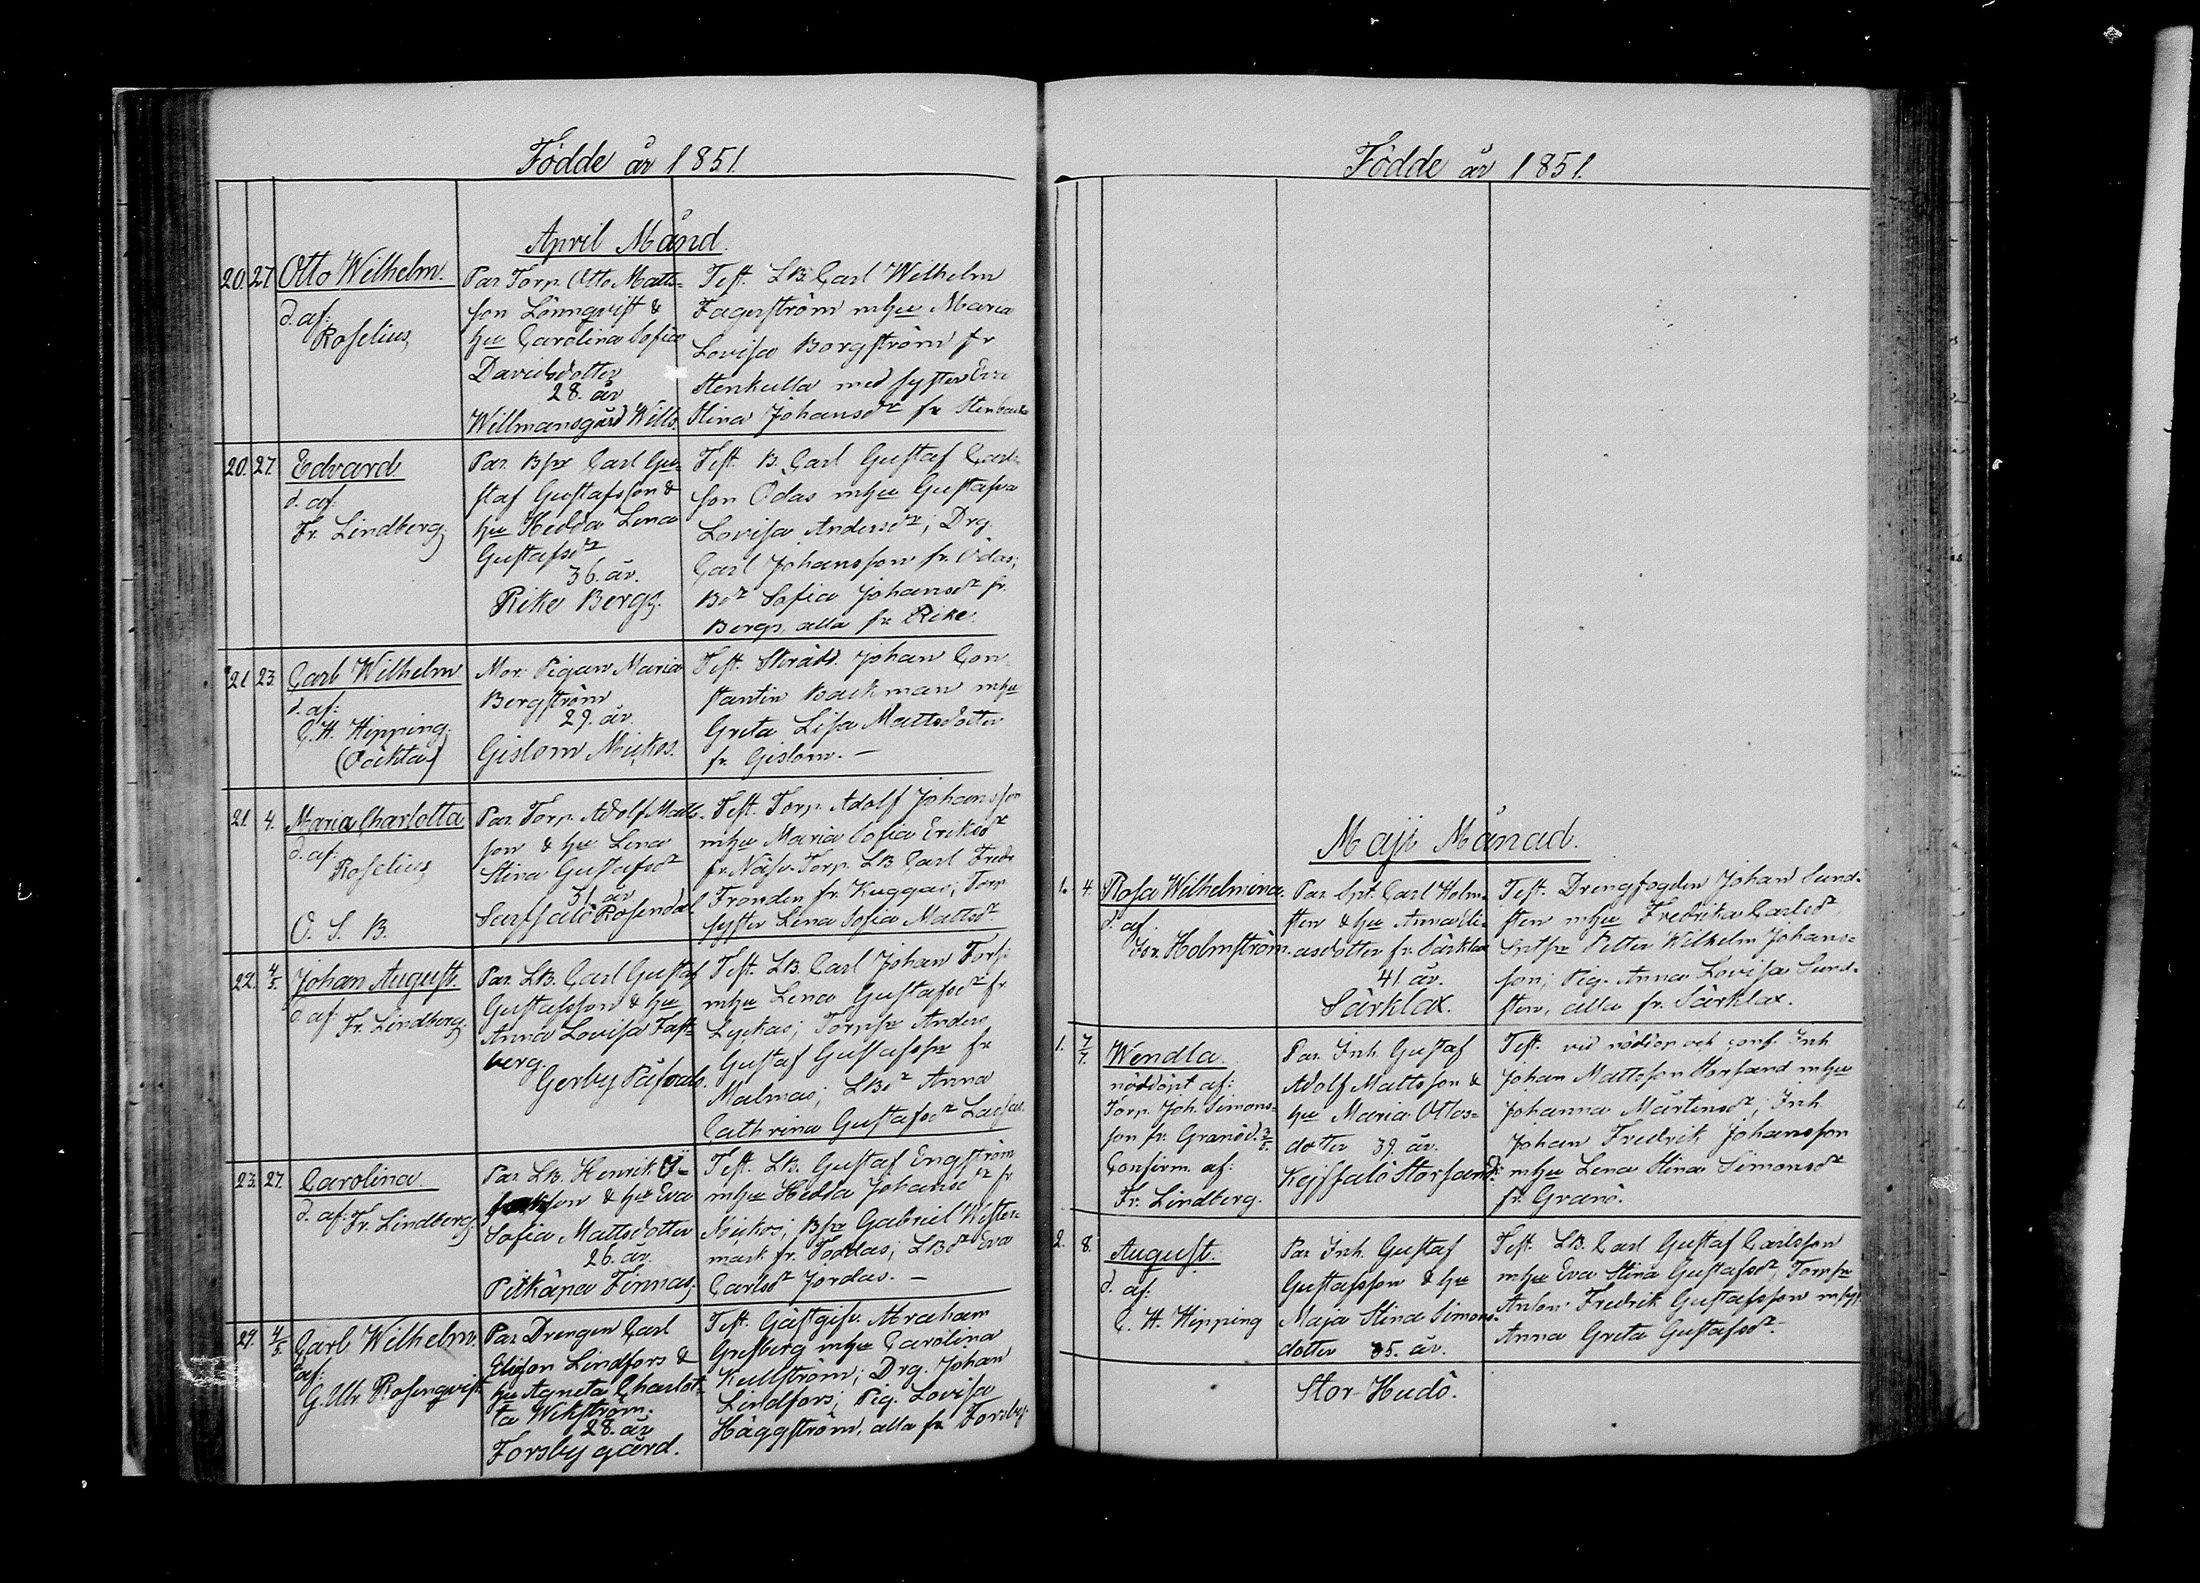 Födde år 1851.
April Månd.
20. 27. Otto Wilhelm.
d. af:
Roselius
Par. Torp. Otto Matts-
son Lönnqvist &
hu Carolina Sofia
Davidsdotter
28. år
Willmansgård Wills.
Test. LB. Carl Wilhelm
Fagerström mhu Maria
Lovisa Borgström fr
Stenkulla med syster Eva
Stina Johansdr fr Stenbacka
20. 27. Edvard
d. af.
Fr. Lindberg.
Par. Bsr Carl Gu-
staf Gustafsson &
hu Hedda Lena
Gustafsdr
36. år.
Rike Bergs.
Test. B. Carl Gustaf Carls-
son Odas mhu Gustafva
Lovisa Andersdr; Drg.
Carl Johansson fr. Odas;
Bdr Sofia Johansdr fr.
Bergs, alla fr. Rike.
21. 23. Carl Wilhelm
d. af:
C. H. Hipping.
(Oäkta)
Mor: Pigan Maria
Bergström
29. år.
Gislom Mickos.
Test. Skrädd. Johan Con-
stantin Backman mhu
Greta Lisa Mattsdotter
fr. Gislom. —
21. 4. Maria Charlotta
d. af:
Roselius
O. S. B.
Par. Torp. Adolf Matts-
son & hu Lena
Stina Gustafsdr
31. år
Sarfsalö Rosendal
Test. Torp. Adolf Johansson
mhu Maria Sofia Eriksdr
fr. Näse. Torp. LB. Carl Fredr
Fronden fr. Kuggas; Torp
syster Lena Sofia Mattsdr
22. 4/5. Johan August.
d. af: Fr. Lindberg.
Par. LB. Carl Gustaf
Gustafsson & hu
Anna Lovisa Fast-
berg.
Gerby Påfvals.
Test. LB. Carl Johan Torss
mhu Lena Gustafsdr fr
Lyckas; Torpsr Anders
Gustaf Gustafssn fr
Malmas; LBdr Anna
Cathrina Gustafsdr
23. 27. Carolina
d. af: Fr. Lindberg.
Par. LB. Henrik
son & hu Eva
Sofia Mattsdotter
26. år.
Pitkäpä Finnas.
Test. LB. Gustaf Engström
mhu Hedda Johansdr fr
Mickos; Bsr Gabriel Wester-
mark fr. Toddas; LBdr Eva
Carlsdr Jordas. —
24. 4/5. Carl Wilhelm.
d af:
G. Ulr. Rosenqvist
Par. Drengen Carl
Elisson Lindfors &
hu Agneta Charlot-
ta Wikström.
28. år
Forsby gård.
Test. Gästgifv. Abraham
Grefberg mhu Carolina
Kullström; Drg. Johan
Lindfors; Pig. Lovisa
Häggström, alla fr. Forsby.
Födde år 1851.
Maji Månad.
1. 4. Rosa Wilhelmina.
d. af.
Jor. Holmström.
Par. Spt. Carl Holm-
sten & hu Anna Eli-
asdotter fr. Särklax
41. år.
Särklax.
Test. Drengfogden Johan Sund-
sten mhu Fredrika Carlsdr,
Sptsr Petter Wilhelm Johans-
son; Pig. Anna Lovisa Sund-
sten, alla fr. Särklax.
1. 7/7. Wendla.
nöddöpt af:
Torp. Joh. Simons-
son fr. Granöd. 3/5.
Confirm. af:
Fr. Lindberg.
Par. Inh. Gustaf
Adolf Mattsson &
hu Maria Ottos-
dotter 39. år.
Kejfsalö Storsand:
Test. vid nöddop och conf. Inh.
Johan Mattsson Storsand mhu
Johanna Mårtensdr; Inh.
Johan Fredrik Johansson
mhu Lena Stina Simonsdr
fr. Granö.
2. 8. August.
d. af:
C. H. Hipping
Par. Inh. Gustaf
Gustafsson & hu
Maja Stina Simons-
dotter 35. år.
Stor-Hudö.
Test. LB. Carl Gustaf Carlsson
mhu Eva Stina Gustafsdr; Torpsr
Anton Fredrik Gustafsson m syst.
Anna Greta Gustafsdr.